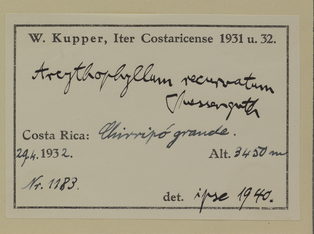 W. Kupper, Iter Costaricense 1931 u. 32.
Arcythophyllum recurvatum
Suessenguth
Costa Rica: Chirripó grande.
29.4. 1932. Alt. 3450 m
Nr. 1183.
det. ipse 1940.